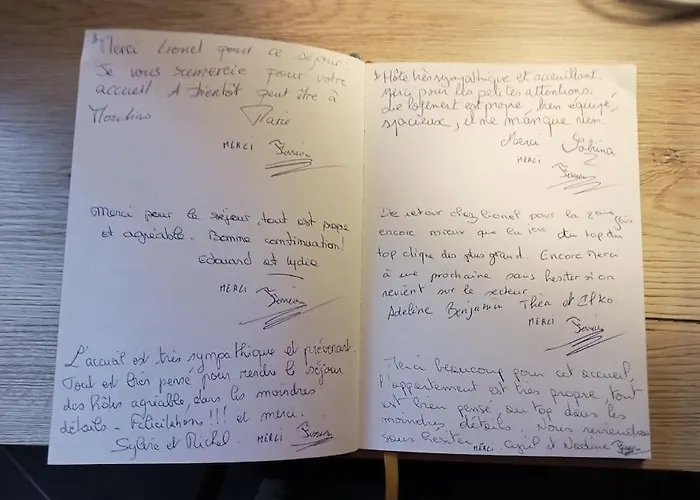 Merci Lionel pour ce séjour!
Je vous remercie pour votre
accueil A bientôt peut être à
Marie
MERCI
Merci pour le séjour, tout est propre
et agréable. Bonne continuation!
Edouard et Lydie
MERCI
L'accueil est très sympathique et prévenant.
Tout est bien pensé pour rendre le séjour
des hôtes agréable, dans les moindres
détails - Félicitations !!! et merci.
Sylvie et Michel. MERCI
Hôte très sympathique et accueillant
Merci pour les petites attentions.
Le logement est propre, bien équipé,
spacieux, il ne manque rien.
Merci Sabrina
MERCI
De retour chez Lionel pour la 2ème fois
encore mieux que la 1ère du top du
top clique des plus grand. Encore Merci
à une prochaine sans hesiter si on
revient sur le secteur.
Adeline Benjamin Théa et
MERCI
Merci beaucoup pour cet accueil,
l'appartement est très propre, tout
est bien pensé, au top dans les
moindres détails. Nous reviendrons
sans hésiter. MERCI Cyril et Nadine